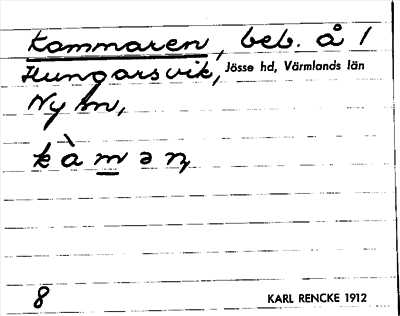 Kammaren, beb. å 1
Hungarsvik, Jösse hd, Värmlands län
Ny sn,
kàmən̥
8 KARL RENCKE 1912